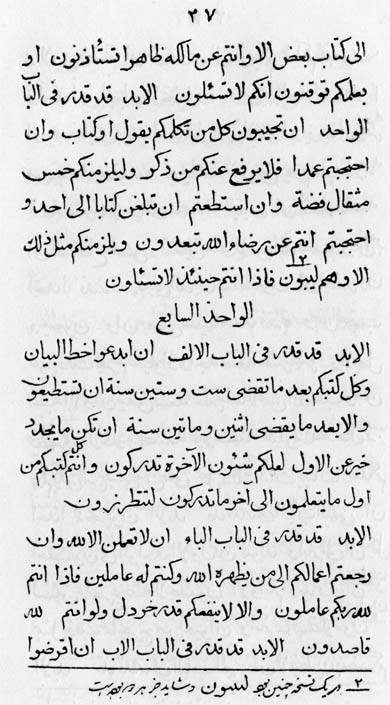 ٣٧
الی کتاب بعض الا و انتم عن مالکه ظاهرا تستأذنون او
بعلمکم توقنون انکم لا تسئلون الابد قد قدر فی الباب
الواحد ان تجیبون کل من تکلمکم بقول او کتاب و ان
احتجبتم عمدا فلا یرفع عنکم من ذکر و لیلزمنکم خمس
مثقال فضة و ان استطعتم ان تبلغن کتابا الی احد و
احتجبتم انتم عن رضاء الله تبعدون و یلزمنکم مثل ذلک
الا و هم لیبون ٢ فاذا انتم حینئذ لا تستاون
الواحد السابع
الابد قد قدر فی الباب الالف ان ابدعوا خط البیان
و کل کتبکم بعد ما تقضی ست و ستین سنة ان تستطیعون
و الا بعد ما یقضی اثنین و مأتین سنة ان تکن ما یجدد
خیر عن الاول لعلکم شئون الآخرة تدرکون و انتم کل کتبکم من
اول ما یتعلمون الی آخر ما تدرکون لتنظرزون
الابد قد قدر فی الباب الباء ان لا تعملن الا لله و ان
رجعتم اعمالکم الی من یظهره الله و کنتم له عاملین فاذا انتم
لله ربکم عاملون و الا لا ینفعکم قدر خردل و لو انتم لله
قاصدون الابد قد قدر فی الباب الاب ان اقرضوا
٢ - در یک نسخه چنین بود لیسون و شاید جز هر دو بوده است